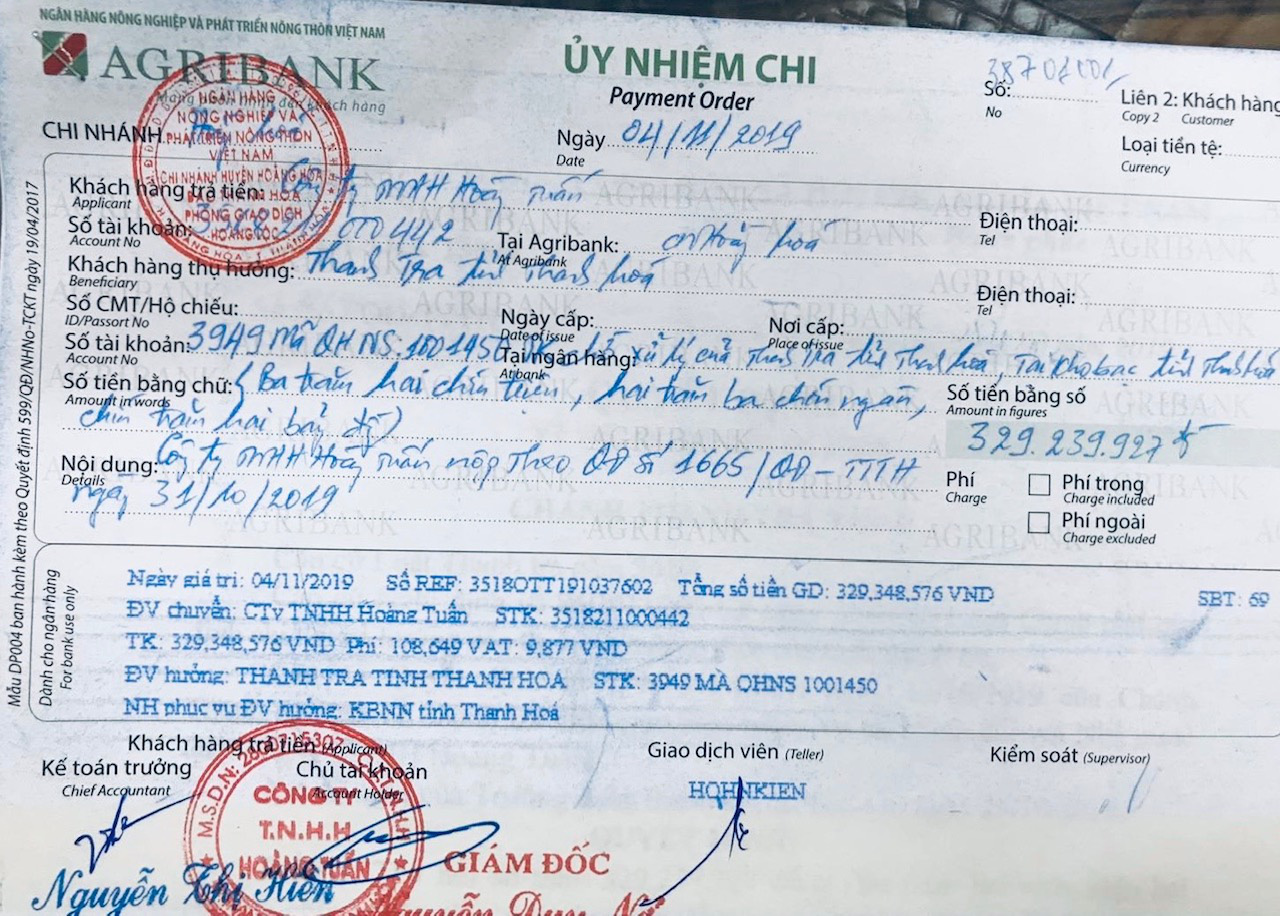 NGÂN HÀNG NÔNG NGHIỆP VÀ PHÁT TRIỂN NÔNG THÔN VIỆT NAM
AGRIBANK
Mang phồn thịnh đến khách hàng
ỦY NHIỆM CHI
Payment Order
Số:
No
Liên 2: Khách hàng
Copy 2 Customer
CHI NHÁNH
Ngày 04/11/2019
Date
Loại tiền tệ:
Currency
NGÂN HÀNG
NÔNG NGHIỆP VÀ
PHÁT TRIỂN NÔNG THÔN
VIỆT NAM
CHI NHÁNH HUYỆN HOẰNG HÓA
PHÒNG GIAO DỊCH
HOẰNG LỘC
Khách hàng trả tiền: Công ty TNHH Hoàng Tuấn
Applicant
Điện thoại:
Tel
Số tài khoản: 000442 Tại Agribank: CN Hoằng hoá
Account No At Agribank
Khách hàng thụ hưởng: Thanh Tra tỉnh Thanh hoá
Beneficiary
Điện thoại:
Tel
Số CMT/Hộ chiếu: Ngày cấp: Nơi cấp:
ID/Passort No Date of issue Place of issue
Số tài khoản: 3949 Mã QHNS. 1001450 xử lý của Thanh Tra tỉnh Thanh hoá, Tại Kho bạc tỉnh Thanh hóa
Account No Tại ngân hàng:
At bank
Số tiền bằng chữ: (Ba trăm hai chín triệu, hai trăm ba chín ngàn,
Amount in words
chín trăm hai bảy đồng)
Số tiền bằng số
Amount in figures
329.239.927đ
Nội dung: Công ty TNHH Hoàng Tuấn nộp Theo QĐ số 1665/QĐ-TTTH
Details
ngày 31/10/2019
Phí
Charge
Phí trong
Charge included
Phí ngoài
Charge excluded
Mẫu DP004 ban hành kèm theo Quyết định 599/QĐ/NHNo-TCKT ngày 19/04/2017
Dành cho ngân hàng
For bank use only
Ngày giá trị: 04/11/2019 Số REF: 3518OTT191037602 Tổng số tiền GD: 329,348,576 VND SBT: 69
ĐV chuyển: CTy TNHH Hoàng Tuấn STK: 3518211000442
TK: 329,348,576 VND Phí: 108,649 VAT: 9,877 VND
ĐV hưởng: THANH TRA TINH THANH HOA STK: 3949 MA QHNS 1001450
NH phục vụ ĐV hưởng: KBNN tỉnh Thanh Hoá
Khách hàng trả tiền (Applicant)
Giao dịch viên (Teller)
Kiểm soát (Supervisor)
Kế toán trưởng
Chief Accountant
Chủ tài khoản
Account Holder
HQHNKIEN
CÔNG TY
T.N.H.H
HOÀNG TUẤN
GIÁM ĐỐC
Nguyễn Thị Hiền
Nguyễn Duy